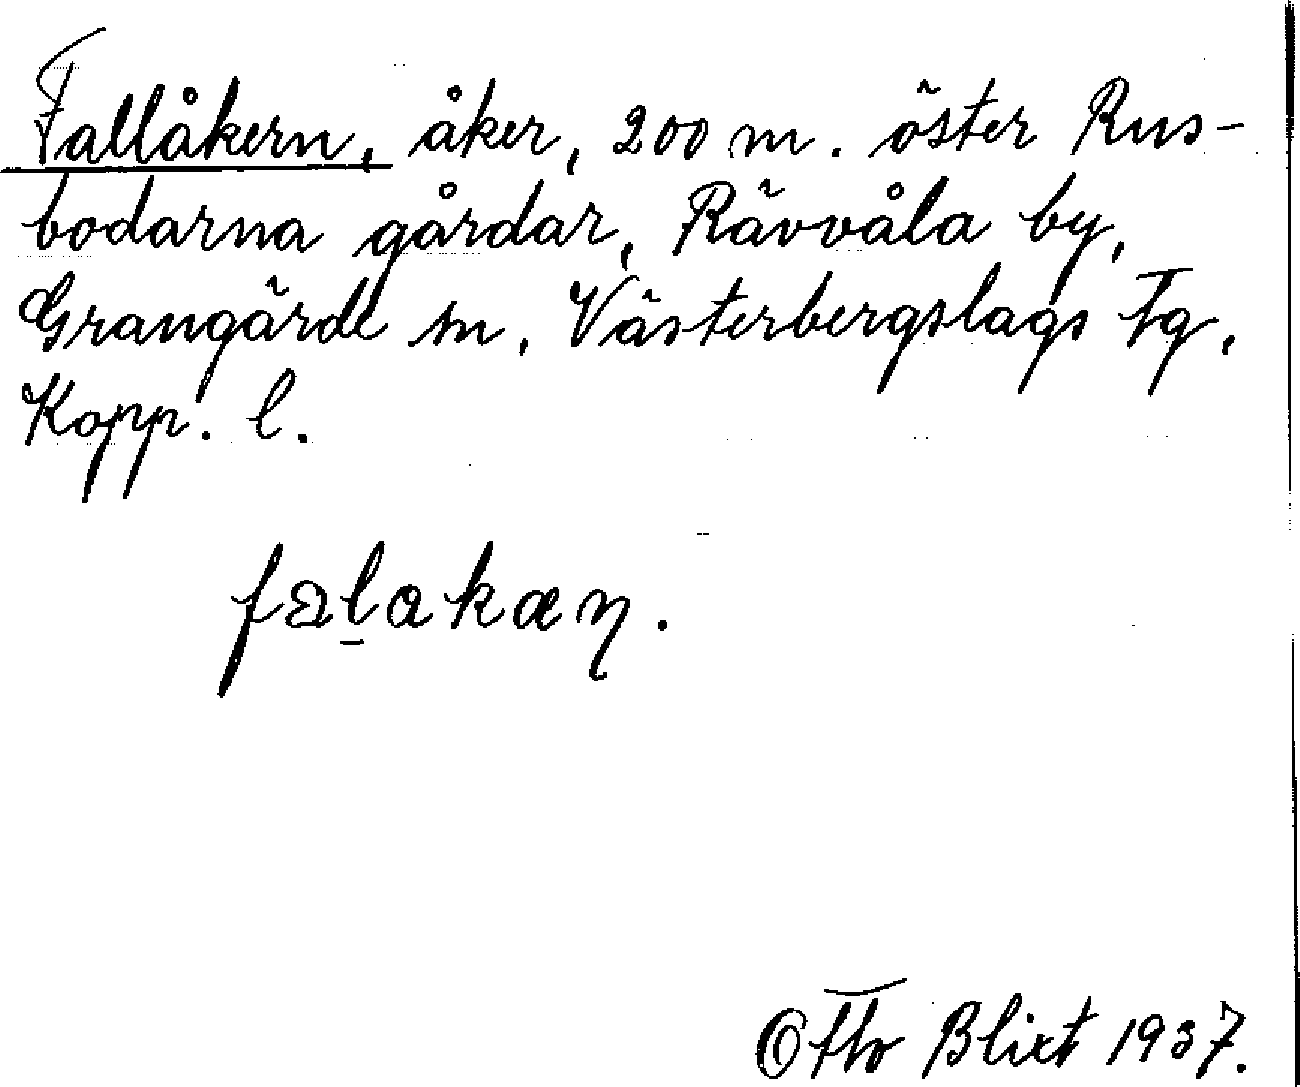 Fallåkern, åker, 200 m. öster Rus-
bodarna gårdar, Rävvåla by,
Grangärde sn, Västerbergslags Fg,
Kopp. l.
falakæɳ.
Otto Blixt 1937.